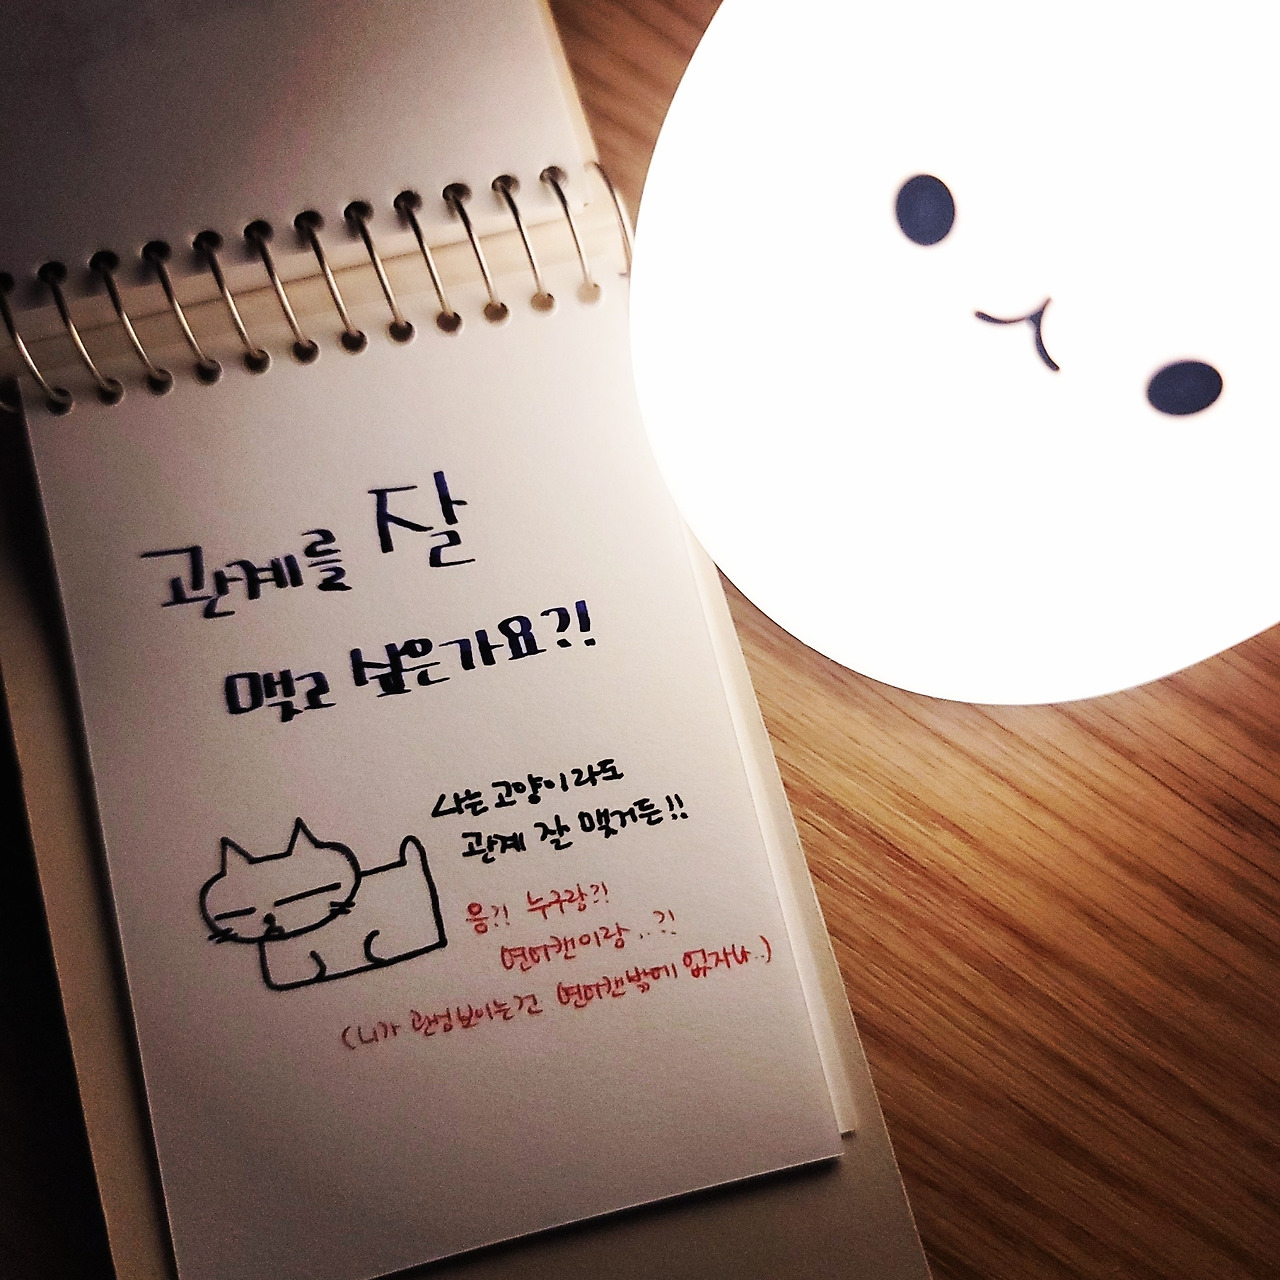 관계를 잘
맺고 싶은가요?!
나는 고양이라도
관계 잘 맺거든!!
응?! 누구랑?!
연어캔이랑..?!
(니가 관심보이는건 연어캔밖에 없자나..)